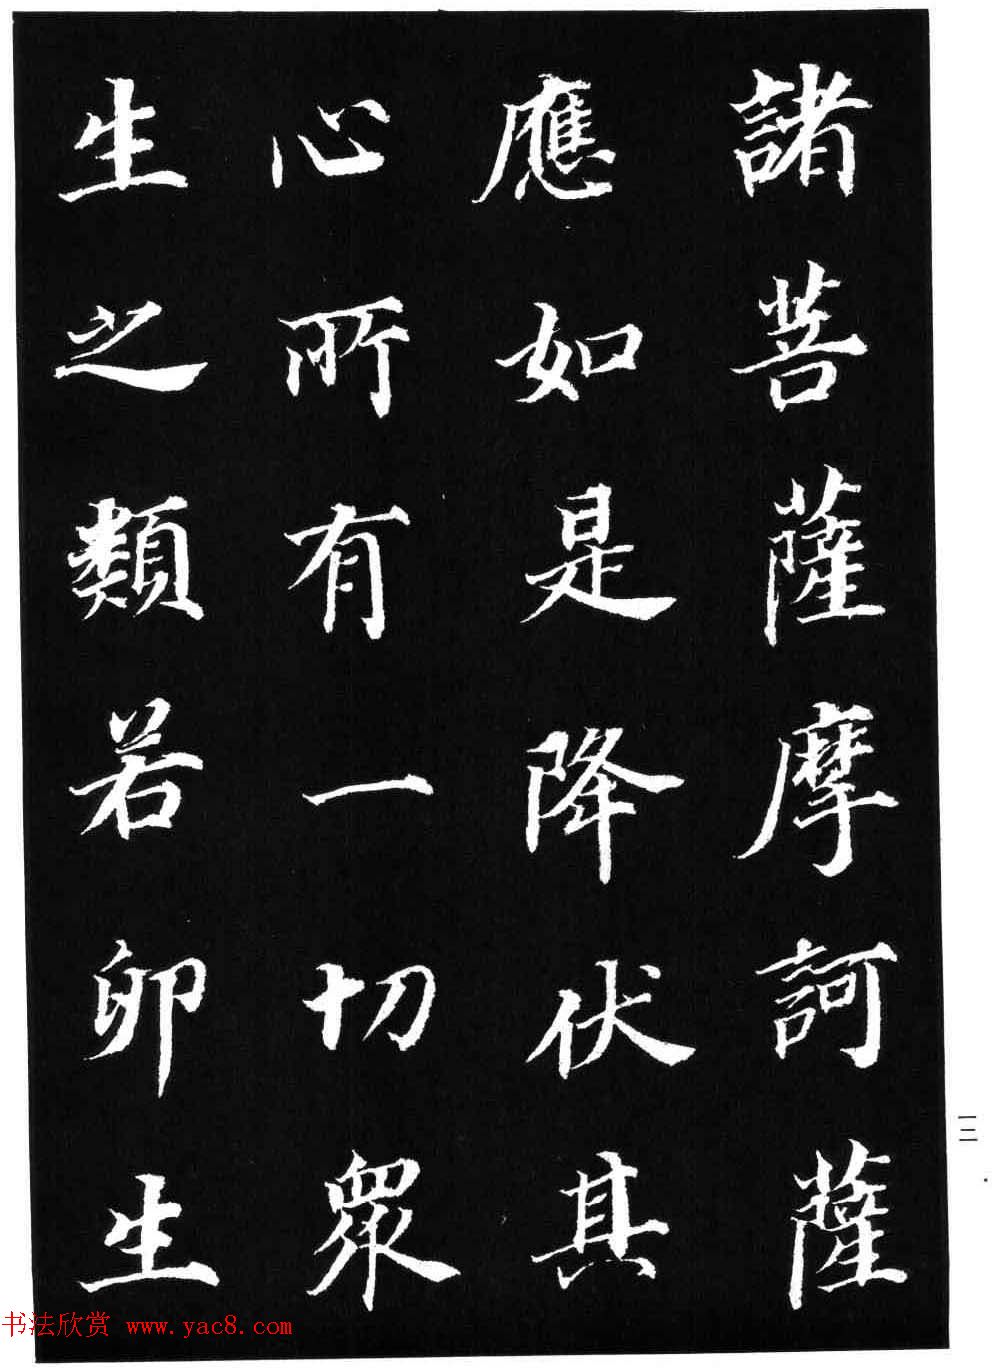 諸菩薩摩訶薩
應如是降伏其
心所有一切眾
生之類若卵生
一二
书法欣赏 www.yac8.com